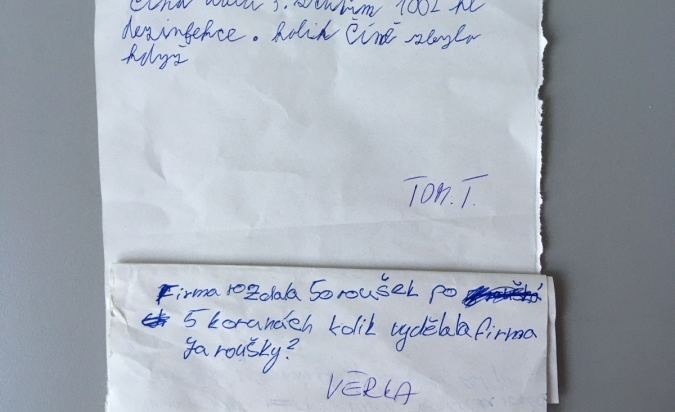 Čína 100l
dezinfekce. kolik Číně zbylo
když
TOM. T.
Firma rozdala 50 roušek po
5 korunách kolik vydělala firma
za roušky?
VĚRKA